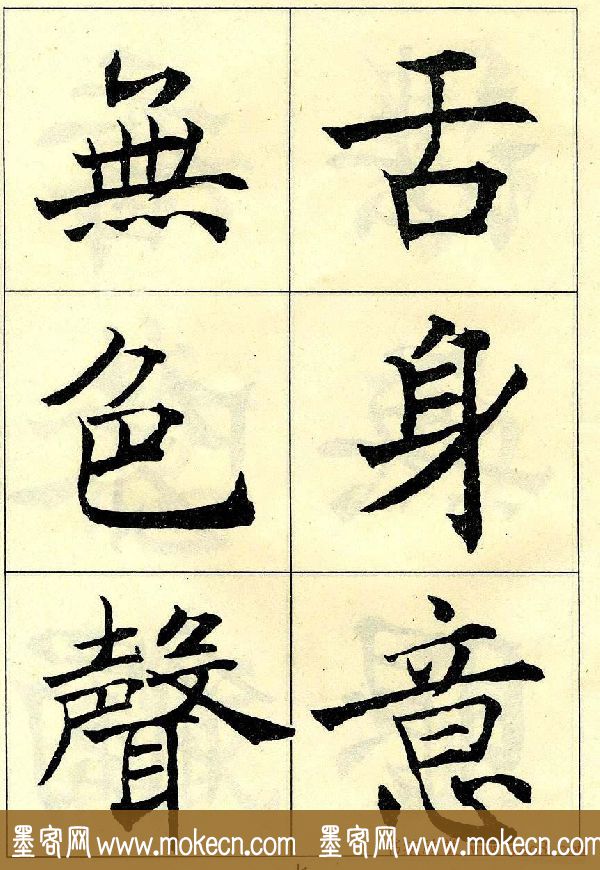 舌身意
無色聲
墨客网 www.mokecn.com 墨客网 www.mokecn.com